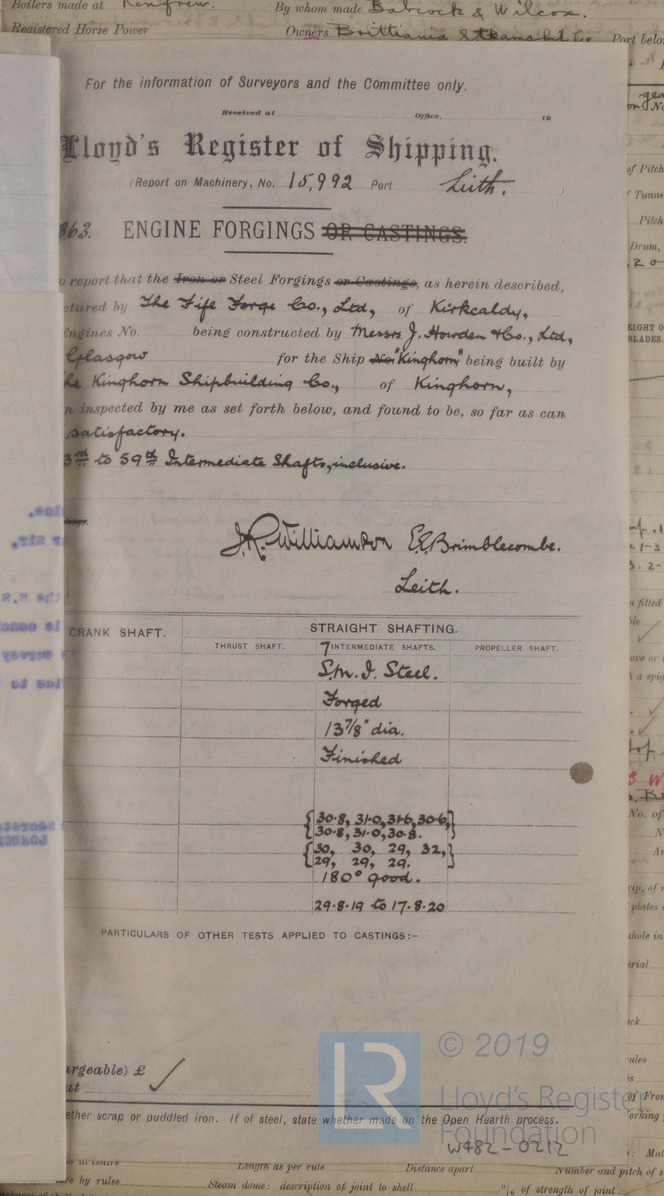 Boilers made at Renfrew. By whom made Babcock & Wilcox.
Registered Horse Power Owners Port belo
For the information of Surveyors and the Committee only.
Received at Office, 19
Lloyd's Register of Shipping.
(Report on Machinery, No. 15,992 Port Leith. )
863. ENGINE FORGINGS OR CASTINGS.
o report that the Iron or Steel Forgings or Castings, as herein described,
ctured by The Fife Forge Co., Ltd, of Kirkcaldy,
Engines No. being constructed by Messrs J. Howden & Co., Ltd,
Glasgow for the Ship No. "Kinghorn" being built by
he Kinghorn Shipbuilding Co., of Kinghorn,
n inspected by me as set forth below, and found to be, so far as can
satisfactory.
3rd to 59th Intermediate Shafts, inclusive.
J.R. Williamson E.E. Brimblecombe.
Leith.
CRANK SHAFT. STRAIGHT SHAFTING.
THRUST SHAFT. 7 INTERMEDIATE SHAFTS. PROPELLER SHAFT.
S.M.I. Steel.
Forged
13 7/8" dia.
Finished
{30.8, 31.0, 31.6, 30.6,}
{30.8, 31.0, 30.8.}
{30, 30, 29, 32,}
{29, 29, 29.}
180° good.
29.8.19 to 17.8.20
PARTICULARS OF OTHER TESTS APPLIED TO CASTINGS:-
argeable) £
at
ether scrap or puddled iron. If of steel, state whether made on the Open Hearth process.
© 2019
Lloyd's Register
Foundation
W482-0212
Length as per rule Distance apart Number and pitch of s
re by rules Steam dome: description of joint to shell % of strength of joint